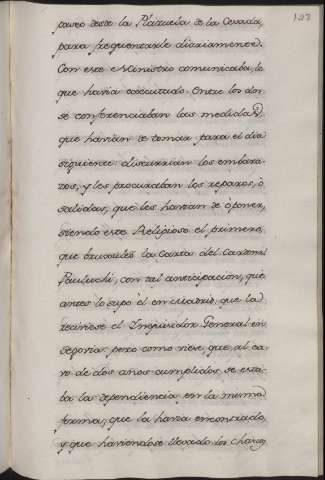 123
paseo desde la Plazuela de la Cevada,
para frequentarle diariamente.
Con este Ministro comunicaba, lo
que havia executado. Entre los dos
se conferenciaban las medidas,
que havian de tomar para el dia
siguiente: discurrian los embara-
zos, y les procuraban los reparos, ò
salidas, que les havian de oponer,
siendo este Religioso el primero,
que la Carta del Cardenal
Pauluchi, con tal anticipacion, que
antes lo supo èl en Madrid, que la
reciviese el Inquisidor General en
Segovia: pero como viese, que al ca-
vo de dos años cumplidos se esta-
ba la dependiencia en la misma
forma, que la havia encontrado,
y que haviendose llevado los